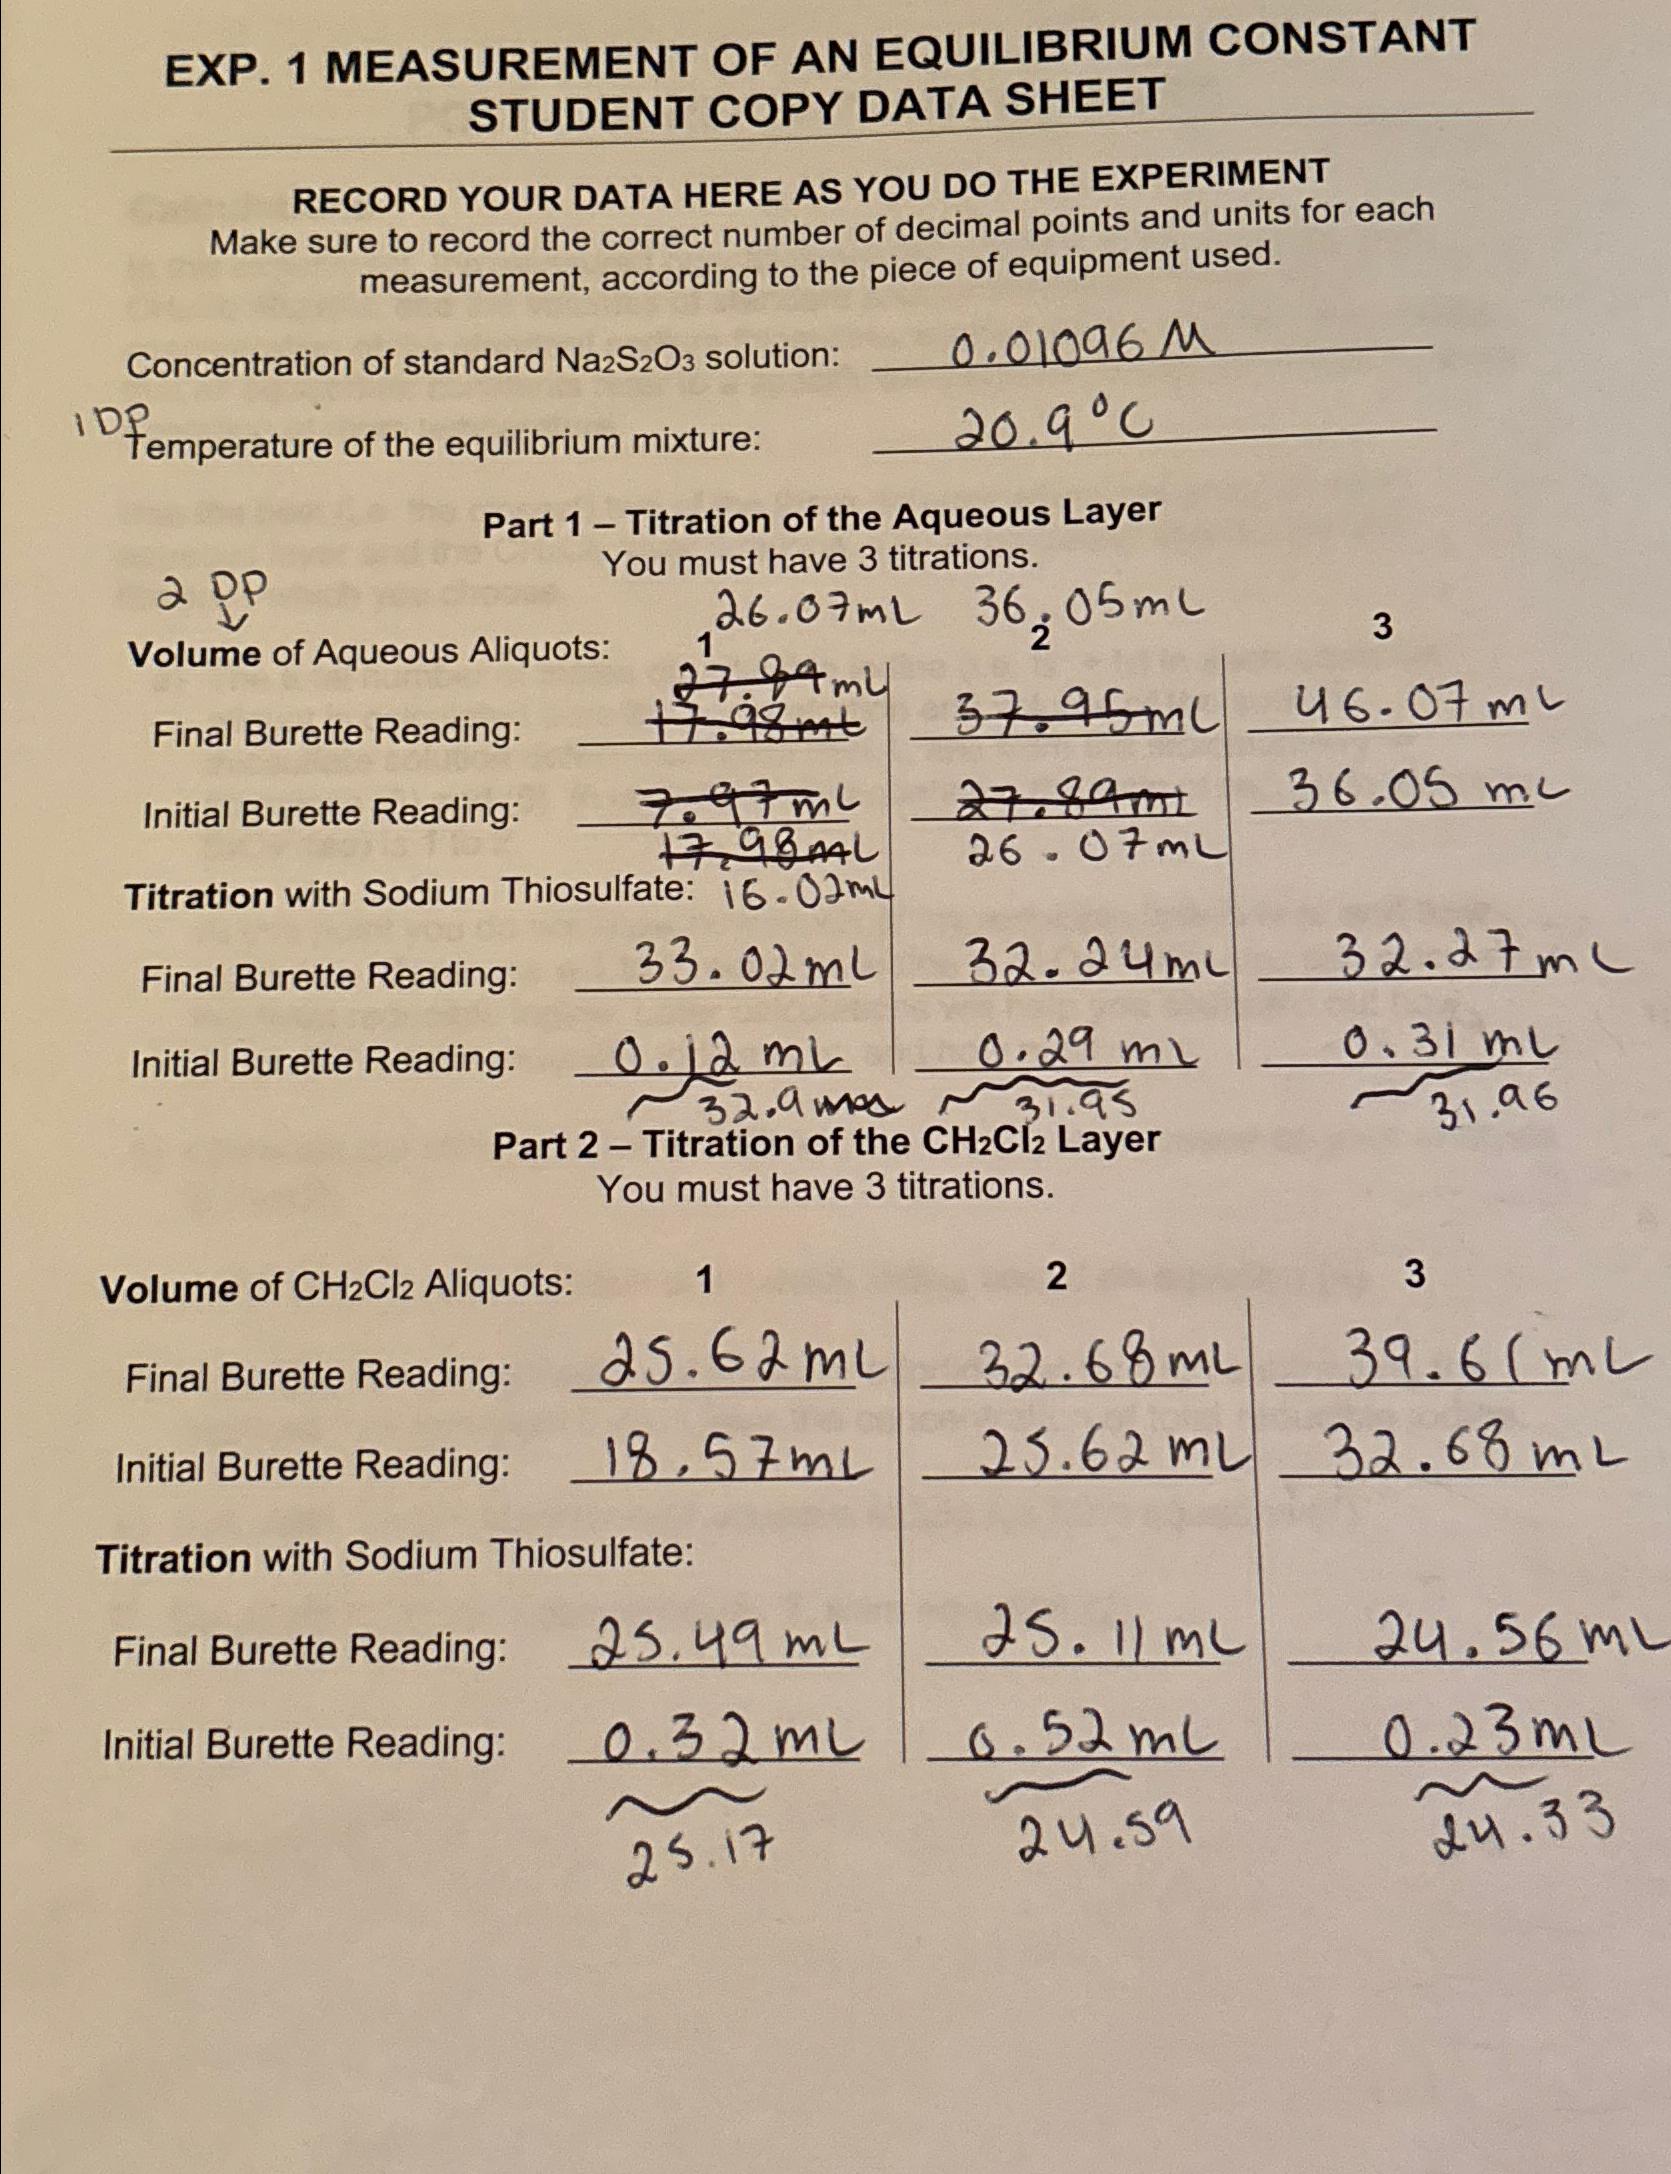 EXP. 1 MEASUREMENT OF AN EQUILIBRIUM CONSTANT
STUDENT COPY DATA SHEET
RECORD YOUR DATA HERE AS YOU DO THE EXPERIMENT
Make sure to record the correct number of decimal points and units for each
measurement, according to the piece of equipment used.
Concentration of standard Na2S2O3 solution: 0.01096 M
1 DP
Temperature of the equilibrium mixture: 20.9°C
Part 1 – Titration of the Aqueous Layer
You must have 3 titrations.
2 DP
↓
26.07mL 36.05mL
Volume of Aqueous Aliquots: 1 2 3
27.89mL
Final Burette Reading: 17.98mL 37.95mL 46.07mL
Initial Burette Reading: 7.97mL 27.89mL 36.05 mL
17.98mL 26.07mL
Titration with Sodium Thiosulfate: 16.02mL
Final Burette Reading: 33.02mL 32.24mL 32.27mL
Initial Burette Reading: 0.12 mL 0.29 mL 0.31 mL
32.9 31.95 31.96
Part 2 – Titration of the CH2Cl2 Layer
You must have 3 titrations.
Volume of CH2Cl2 Aliquots: 1 2 3
Final Burette Reading: 25.62mL 32.68mL 39.61mL
Initial Burette Reading: 18.57mL 25.62mL 32.68mL
Titration with Sodium Thiosulfate:
Final Burette Reading: 25.49mL 25.11mL 24.56mL
Initial Burette Reading: 0.32mL 0.52mL 0.23mL
25.17 24.59 24.33